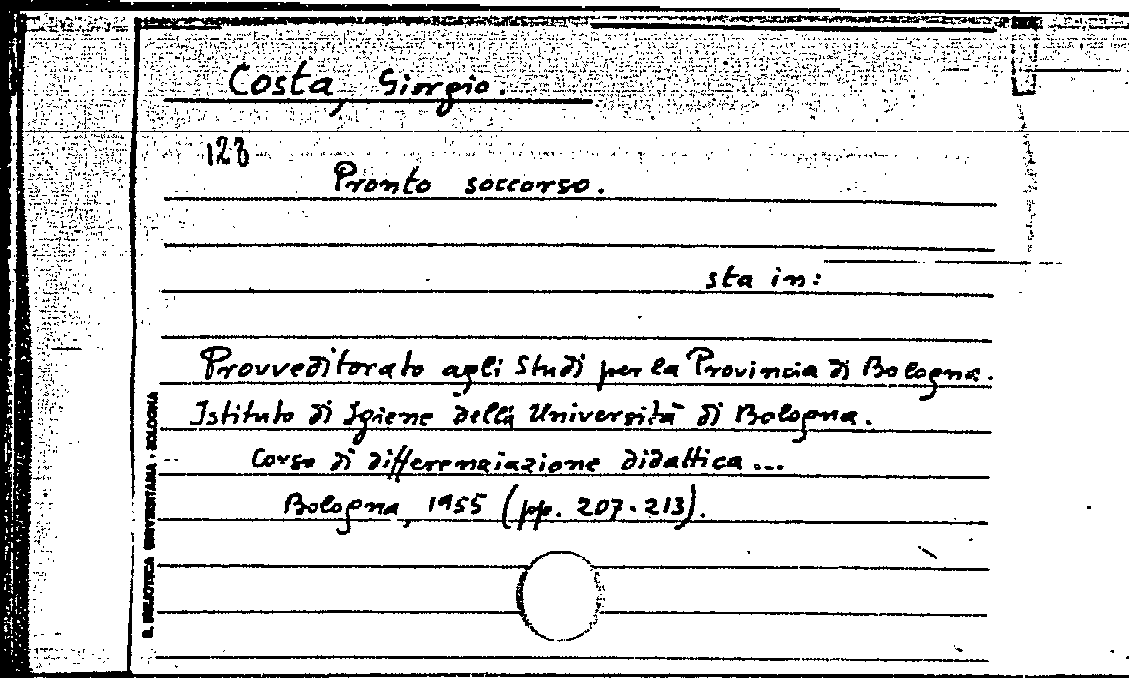 Costa, Giorgio.
128
Pronto soccorso.
sta in:
Provveditorato agli Studi per la Provincia di Bologna.
Istituto di Igiene della Università di Bologna.
Corso di differenziazione didattica...
Bologna, 1955 (pp. 207-213).
R. BIBLIOTECA UNIVERSITARIA - BOLOGNA